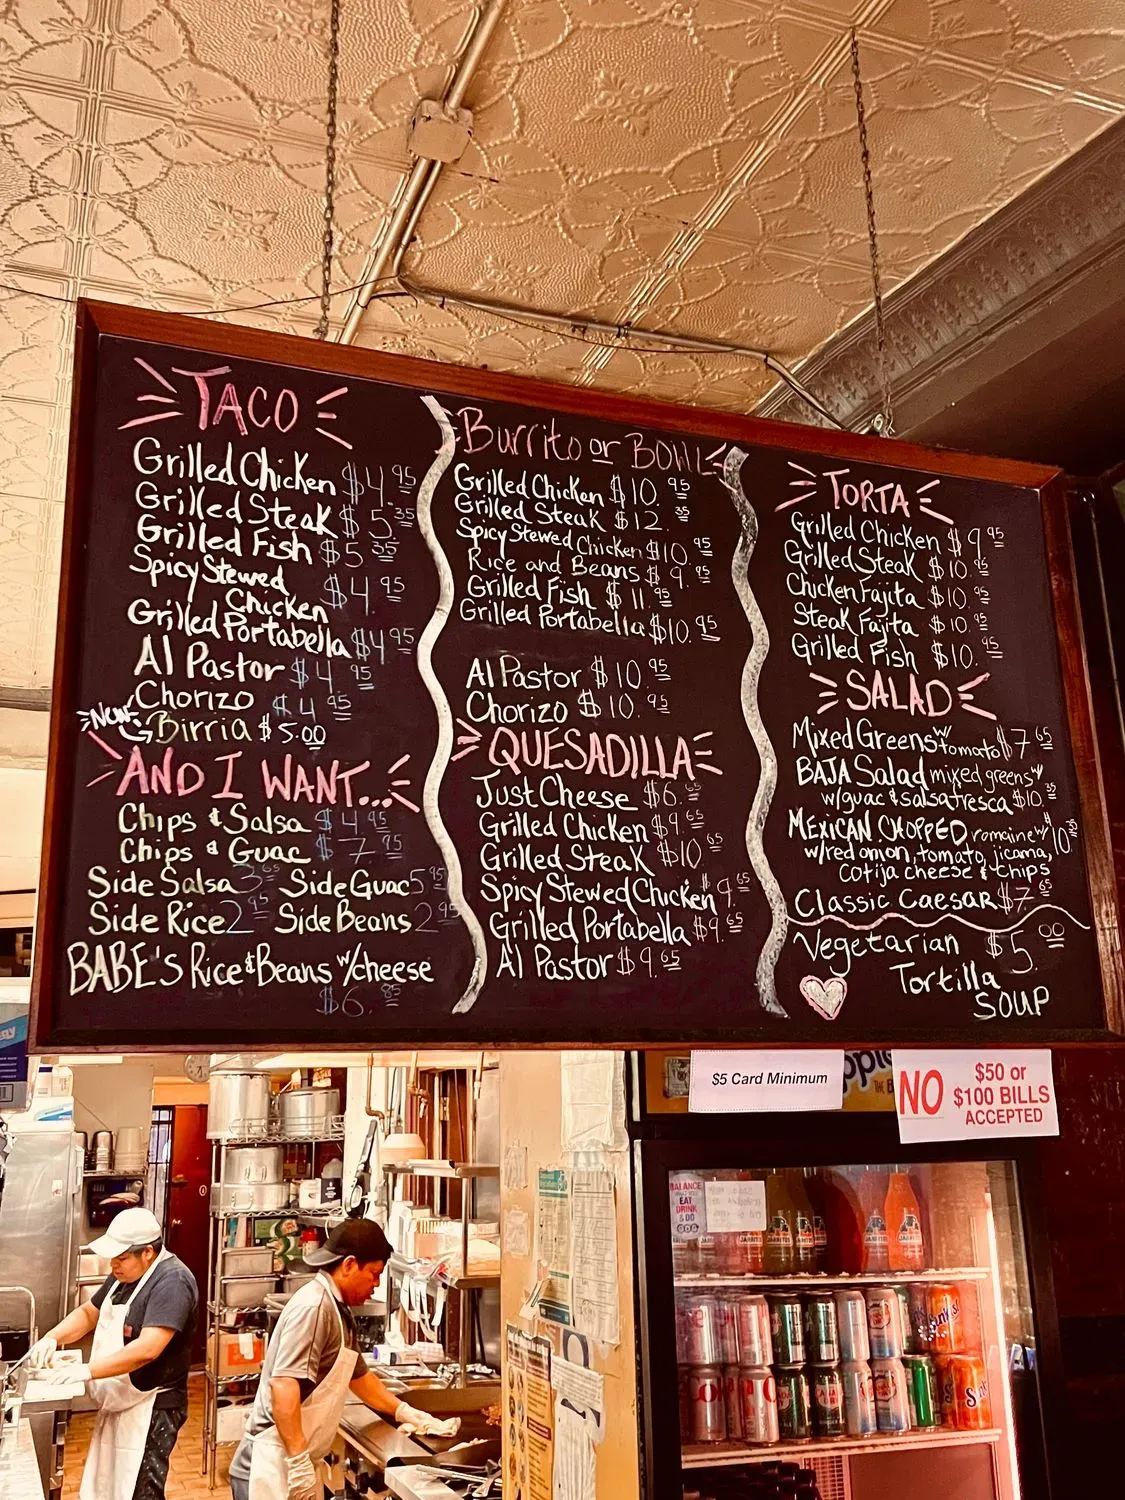 TACO
Grilled Chicken $4.95
Grilled Steak $5.35
Grilled Fish $5.35
Spicy Stewed
Chicken $4.95
Grilled Portabella $4.95
Al Pastor $4.95
Chorizo $4.95
New
Birria $5.00
AND I WANT...
Chips & Salsa $4.95
Chips & Guac $7.95
Side Salsa 3.65 Side Guac 5.95
Side Rice 2.95 Side Beans 2.95
BABE'S Rice & Beans w/cheese
$6.85
Burrito or BOWL
Grilled Chicken $10.95
Grilled Steak $12.35
Spicy Stewed Chicken $10.95
Rice and Beans $9.95
Grilled Fish $11.95
Grilled Portabella $10.95
Al Pastor $10.95
Chorizo $10.95
QUESADILLA
Just Cheese $6.65
Grilled Chicken $9.65
Grilled Steak $10.65
Spicy Stewed Chicken $9.65
Grilled Portabella $9.65
Al Pastor $9.65
TORTA
Grilled Chicken $9.95
Grilled Steak $10.95
Chicken Fajita $10.95
Steak Fajita $10.95
Grilled Fish $10.95
SALAD
Mixed Greens w/ tomato $7.65
BAJA Salad mixed greens w/
w/guac & salsa fresca $10.35
MEXICAN CHOPPED romaine w/
w/red onion, tomato, jicama, 10
cotija cheese & chips
Classic Caesar $7.65
Vegetarian $5.00
Tortilla
SOUP
$5 Card Minimum
NO $50 or
$100 BILLS
ACCEPTED
BALANCE
EAT
DRINK
& DO
JARRITOS
JARRITOS